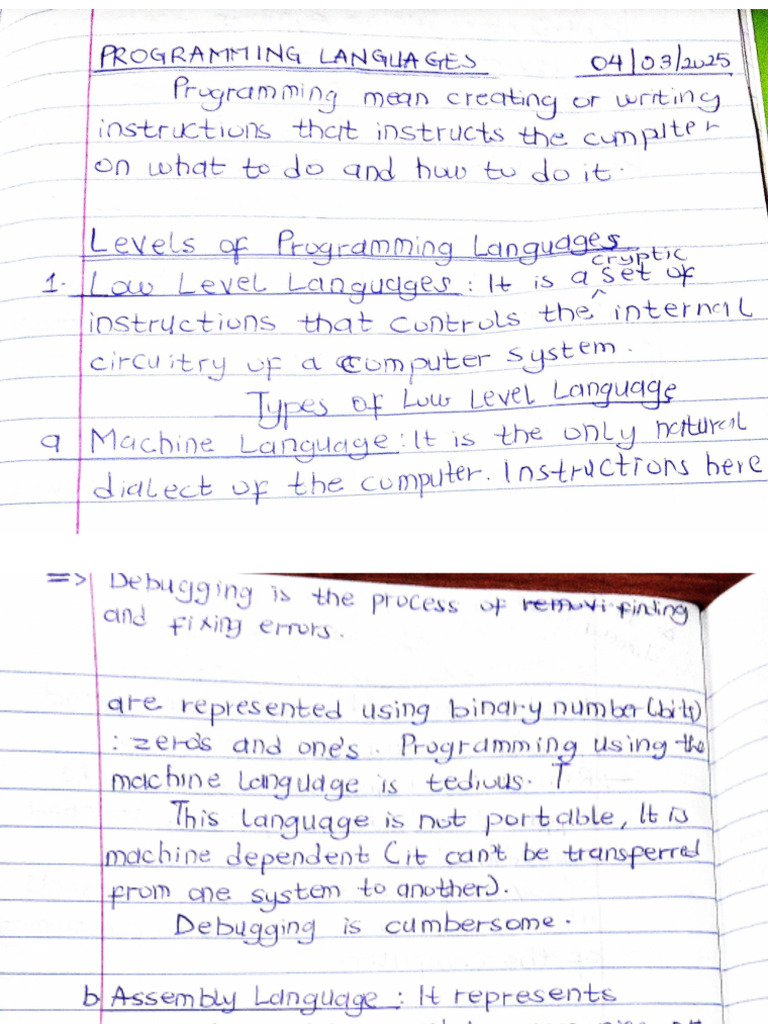 PROGRAMMING LANGUAGES 04/03/2025
Programming mean creating or writing
instructions that instructs the computer
on what to do and how to do it.
Levels of Programming Languages
1. Low Level Languages: It is a cryptic set of
instructions that controls the internal
circuitry of a computer system.
Types of Low Level Language
a Machine Language: It is the only natural
dialect of the computer. Instructions here
=> Debugging is the process of finding
and fixing errors.
are represented using binary number (bits)
: zero's and one's. Programming using the
machine language is tedious. T
This language is not portable, It is
machine dependent (it can't be transferred
from one system to another).
Debugging is cumbersome.
b Assembly Language: It represents